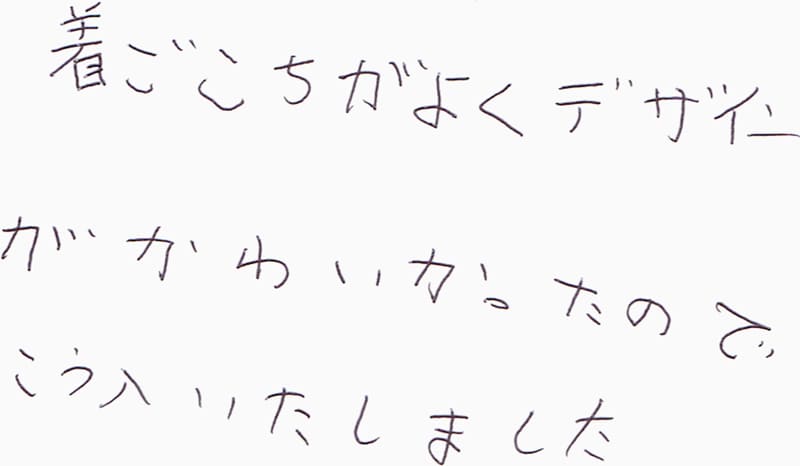 着ごこちがよくデザイン
がかわいかったので
こう入いたしました